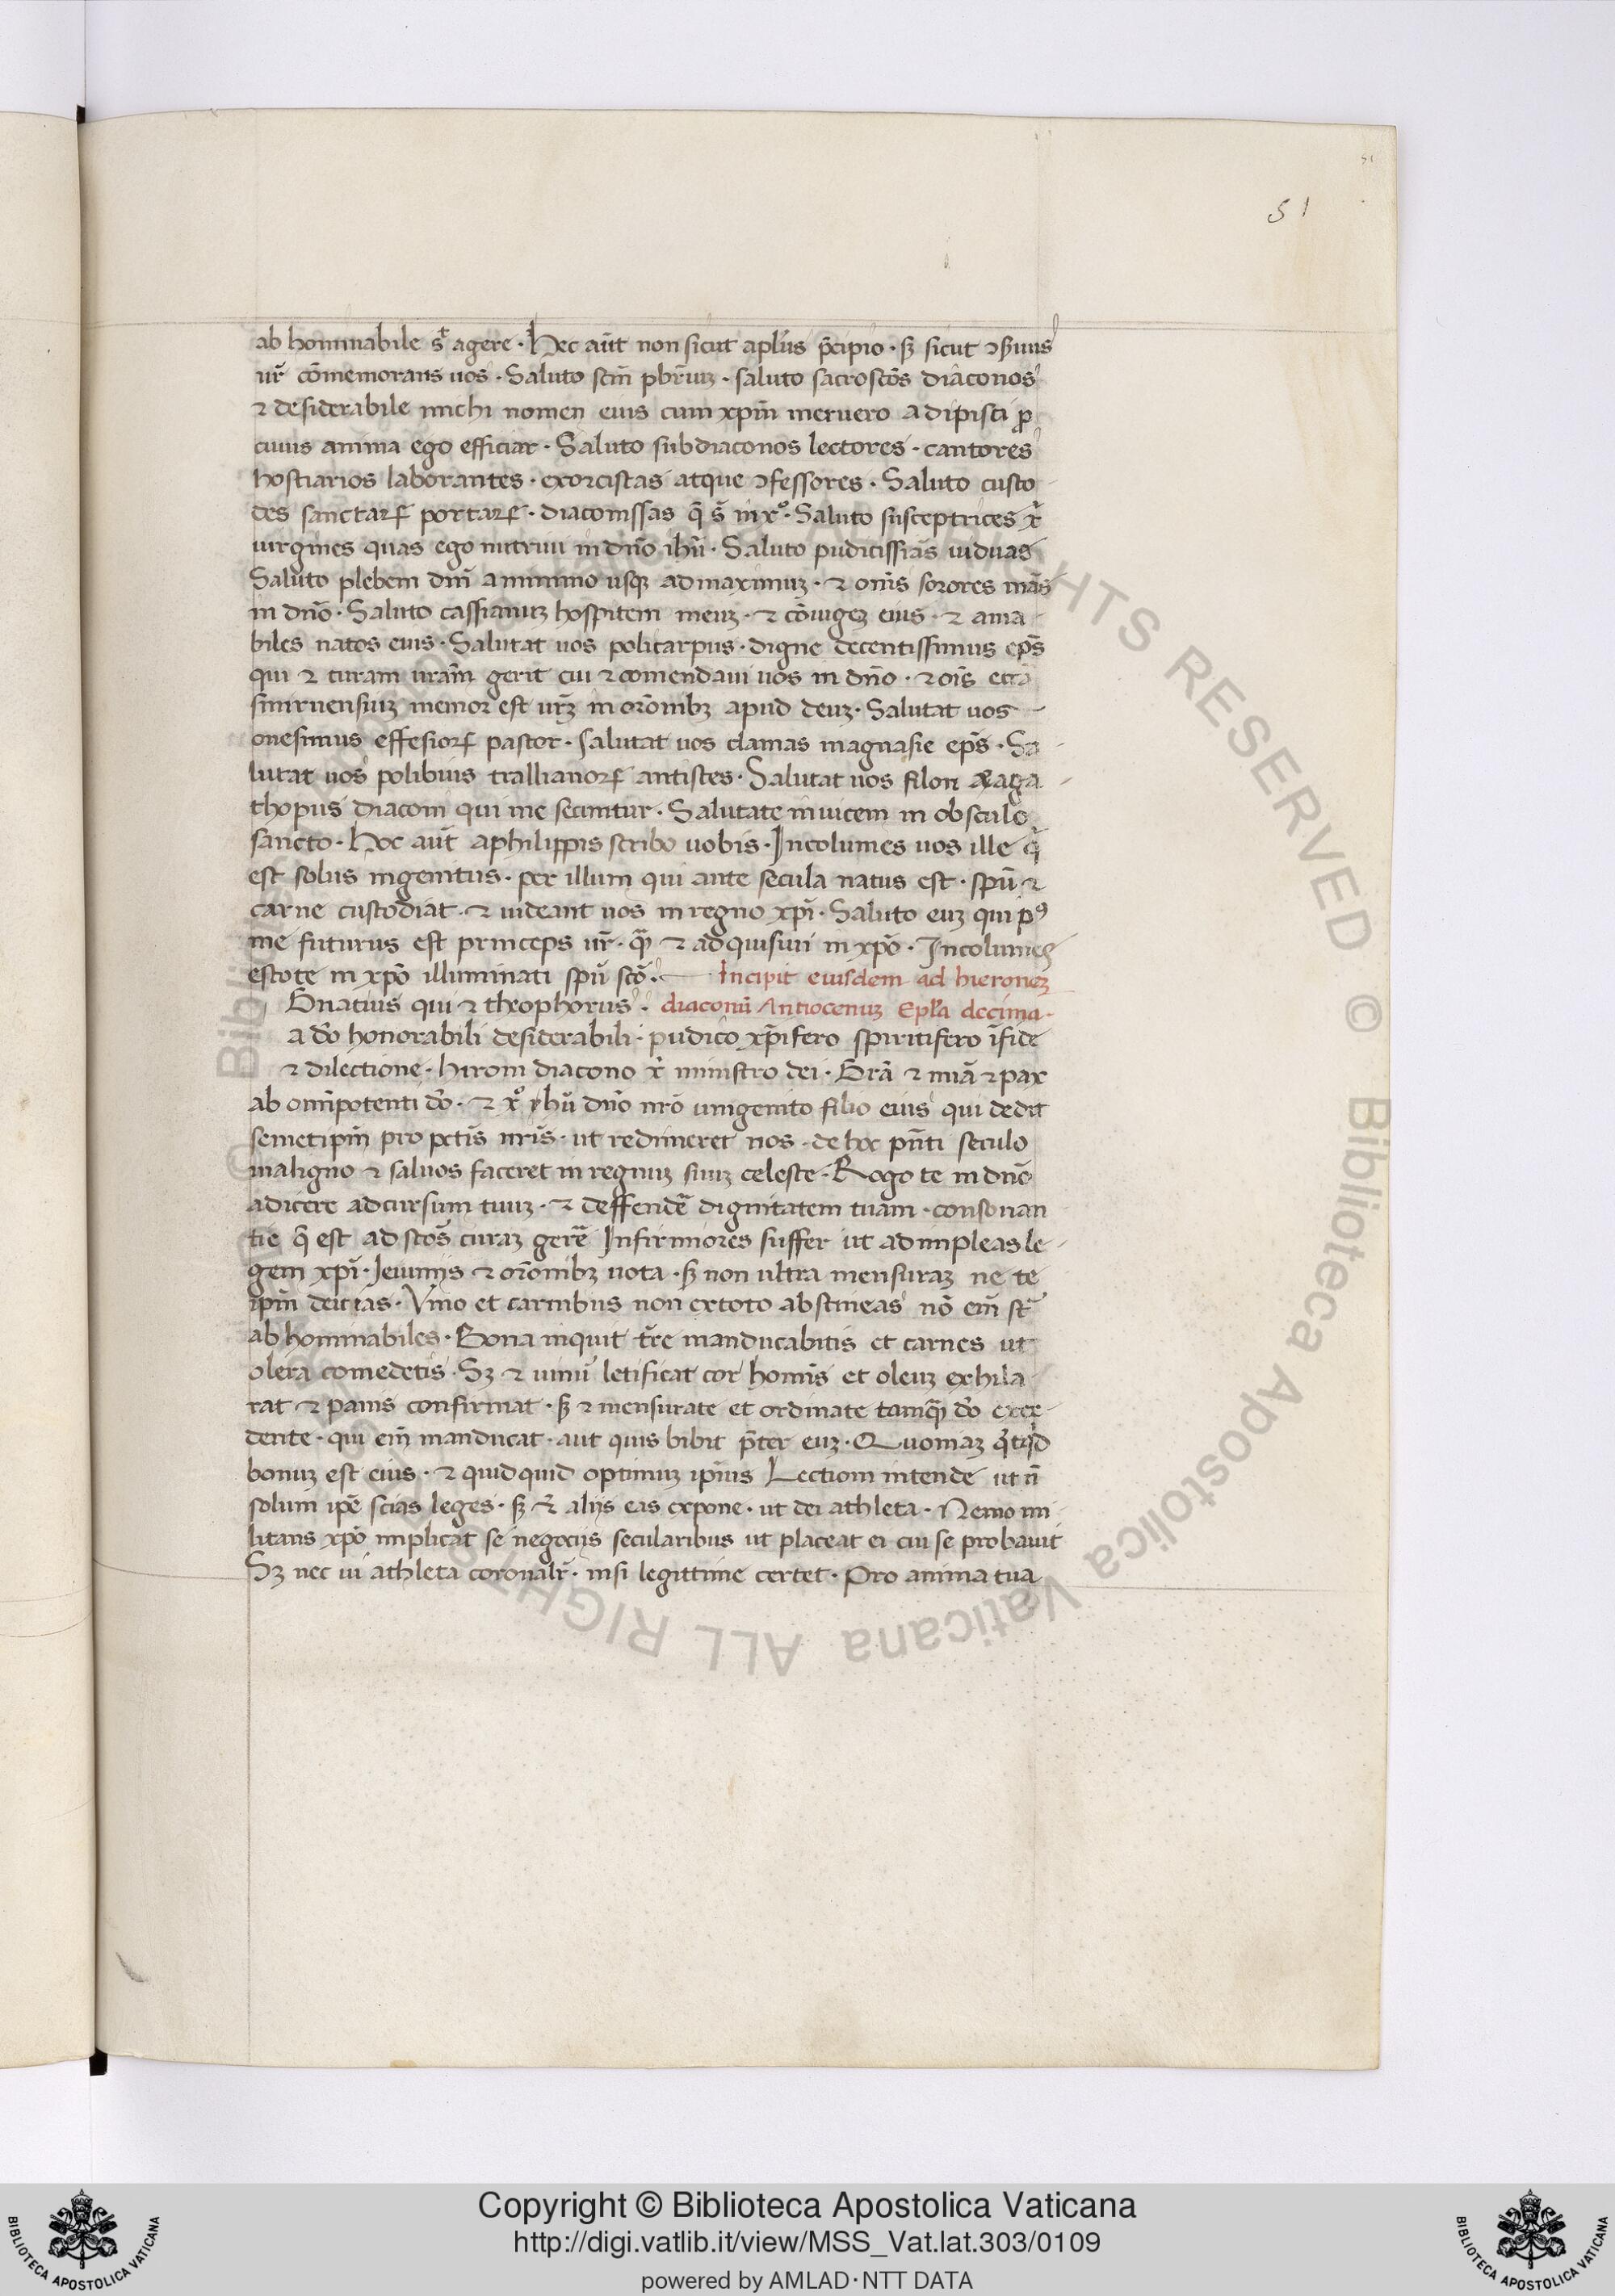 51
ab hominabile st̄ agere · Hec aūt non sicut apl'us p̄cipio · sꝫ sicut ↄseruus
ur̄ cōmemorans uos · Saluto scm̄ pbr̄uꝫ · saluto sacroscōs diaconos
⁊ desiderabile michi nomen eius cum xpm̄ meruero adipisci ꝓ
cuius anima ego efficiar · Saluto subdiaconos lectores · cantores
hostiarios laborantes · exorcistas atque ↄfessores · Saluto custo
des sanctarꝝ portarꝝ · diaconissas q̄ s̄ in x̊ · Saluto susceptrices x̄
uirgines quas ego nutriui in dn̄o ihū · Saluto pudicissīas uiduas
Saluto plebem dn̄i a minimo usqꝫ ad maximuꝫ · ⁊ om̄s sorores mās
in dn̄o · Saluto cassianuꝫ hospitem meuꝫ · ⁊ cōiugeꝫ eius · ⁊ ama
biles natos eius · Salutat uos policarpus · digne decentissimus ep̄s
qui ⁊ curam ur̄am gerit cui ⁊ comendaui uos in dn̄o · ⁊ oīs ecc̄a
smirnensiuꝫ memor est ur̄ꝫ in orōnibꝫ apud deuꝫ · Salutat uos
onesimus effesiorꝝ pastor · salutat uos damas magnasie ep̄s · Sa
lutat uos polibius trallianorꝝ antistes · Salutat uos filon & aga
thopus diaconi qui me secuntur · Salutate inuicem in obsculo
sancto · Hoc aūt a philippis scribo uobis · Incolumes uos ille q̄
est solus ingenitus · per illum qui ante secula natus est · spū ⁊
carne custodiat · ⁊ uideant uos in regno xp̄i · Saluto euꝫ qui pꝰ
me futurus est princeps ur̄ · quē ⁊ adquisiui in xp̄o · Incolumes
estote in xp̄o illuminati spū scō · Incipit eiusdem ad hieroneꝫ
Gnatius qui ⁊ theophorus · diaconū Antiocenuꝫ Epl'a decima ·
a dō honorabili desiderabili · pudico xp̄ifero spiritifero īfide
⁊ dilectione · hironi diacono x̄ ministro dei · Grā ⁊ mīa ⁊ pax
ab om̄ipotenti dō · ⁊ x̊ yhū dn̄o nrō unigenito filio eius qui dedit
semetipm̄ pro pctīs nrīs · ut redimeret nos · de hoc pn̄ti seculo
maligno ⁊ saluos faceret in regnuꝫ suuꝫ celeste · Rogo te in dn̄o
adicere ad cursum tuuꝫ · ⁊ deffendē dignitatem tuam · consonan
tie q̄ est ad scōs curaꝫ gerē Infirmiores suffer ut adimpleas le
gem xp̄i · Ieiuniis ⁊ orōnibꝫ uota · sꝫ non ultra mensuraꝫ ne te
ipm̄ deicias · Vino et carnibus non ex toto abstineas nō em̄ st̄
ab hominabiles · Bona inquit tr̄e manducabitis et carnes ut
olera comedetis · Sꝫ ⁊ uinū letificat cor homīs et oleuꝫ exhila
rat ⁊ panis confirmat · sꝫ ⁊ mensurate et ordinate tamquā dō exer
dente · qui em̄ manducat · aut quis bibit p̄ter euꝫ · Quoniaꝫ qͥcqͥd
bonuꝫ est eius · ⁊ quidquid optimuꝫ ipīus Lectioni intende ut n̄
solum ipē scias leges · sꝫ ⁊ aliis eas expone · ut dei athleta · Nemo mi
litans xp̄o implicat se negociis secularibus ut placeat ei cui se probauit
Sꝫ nec ui athleta coronat̄r · nisi legittime certet · Pro anima tua
Copyright © Biblioteca Apostolica Vaticana
http://digi.vatlib.it/view/MSS_Vat.lat.303/0109
powered by AMLAD·NTT DATA